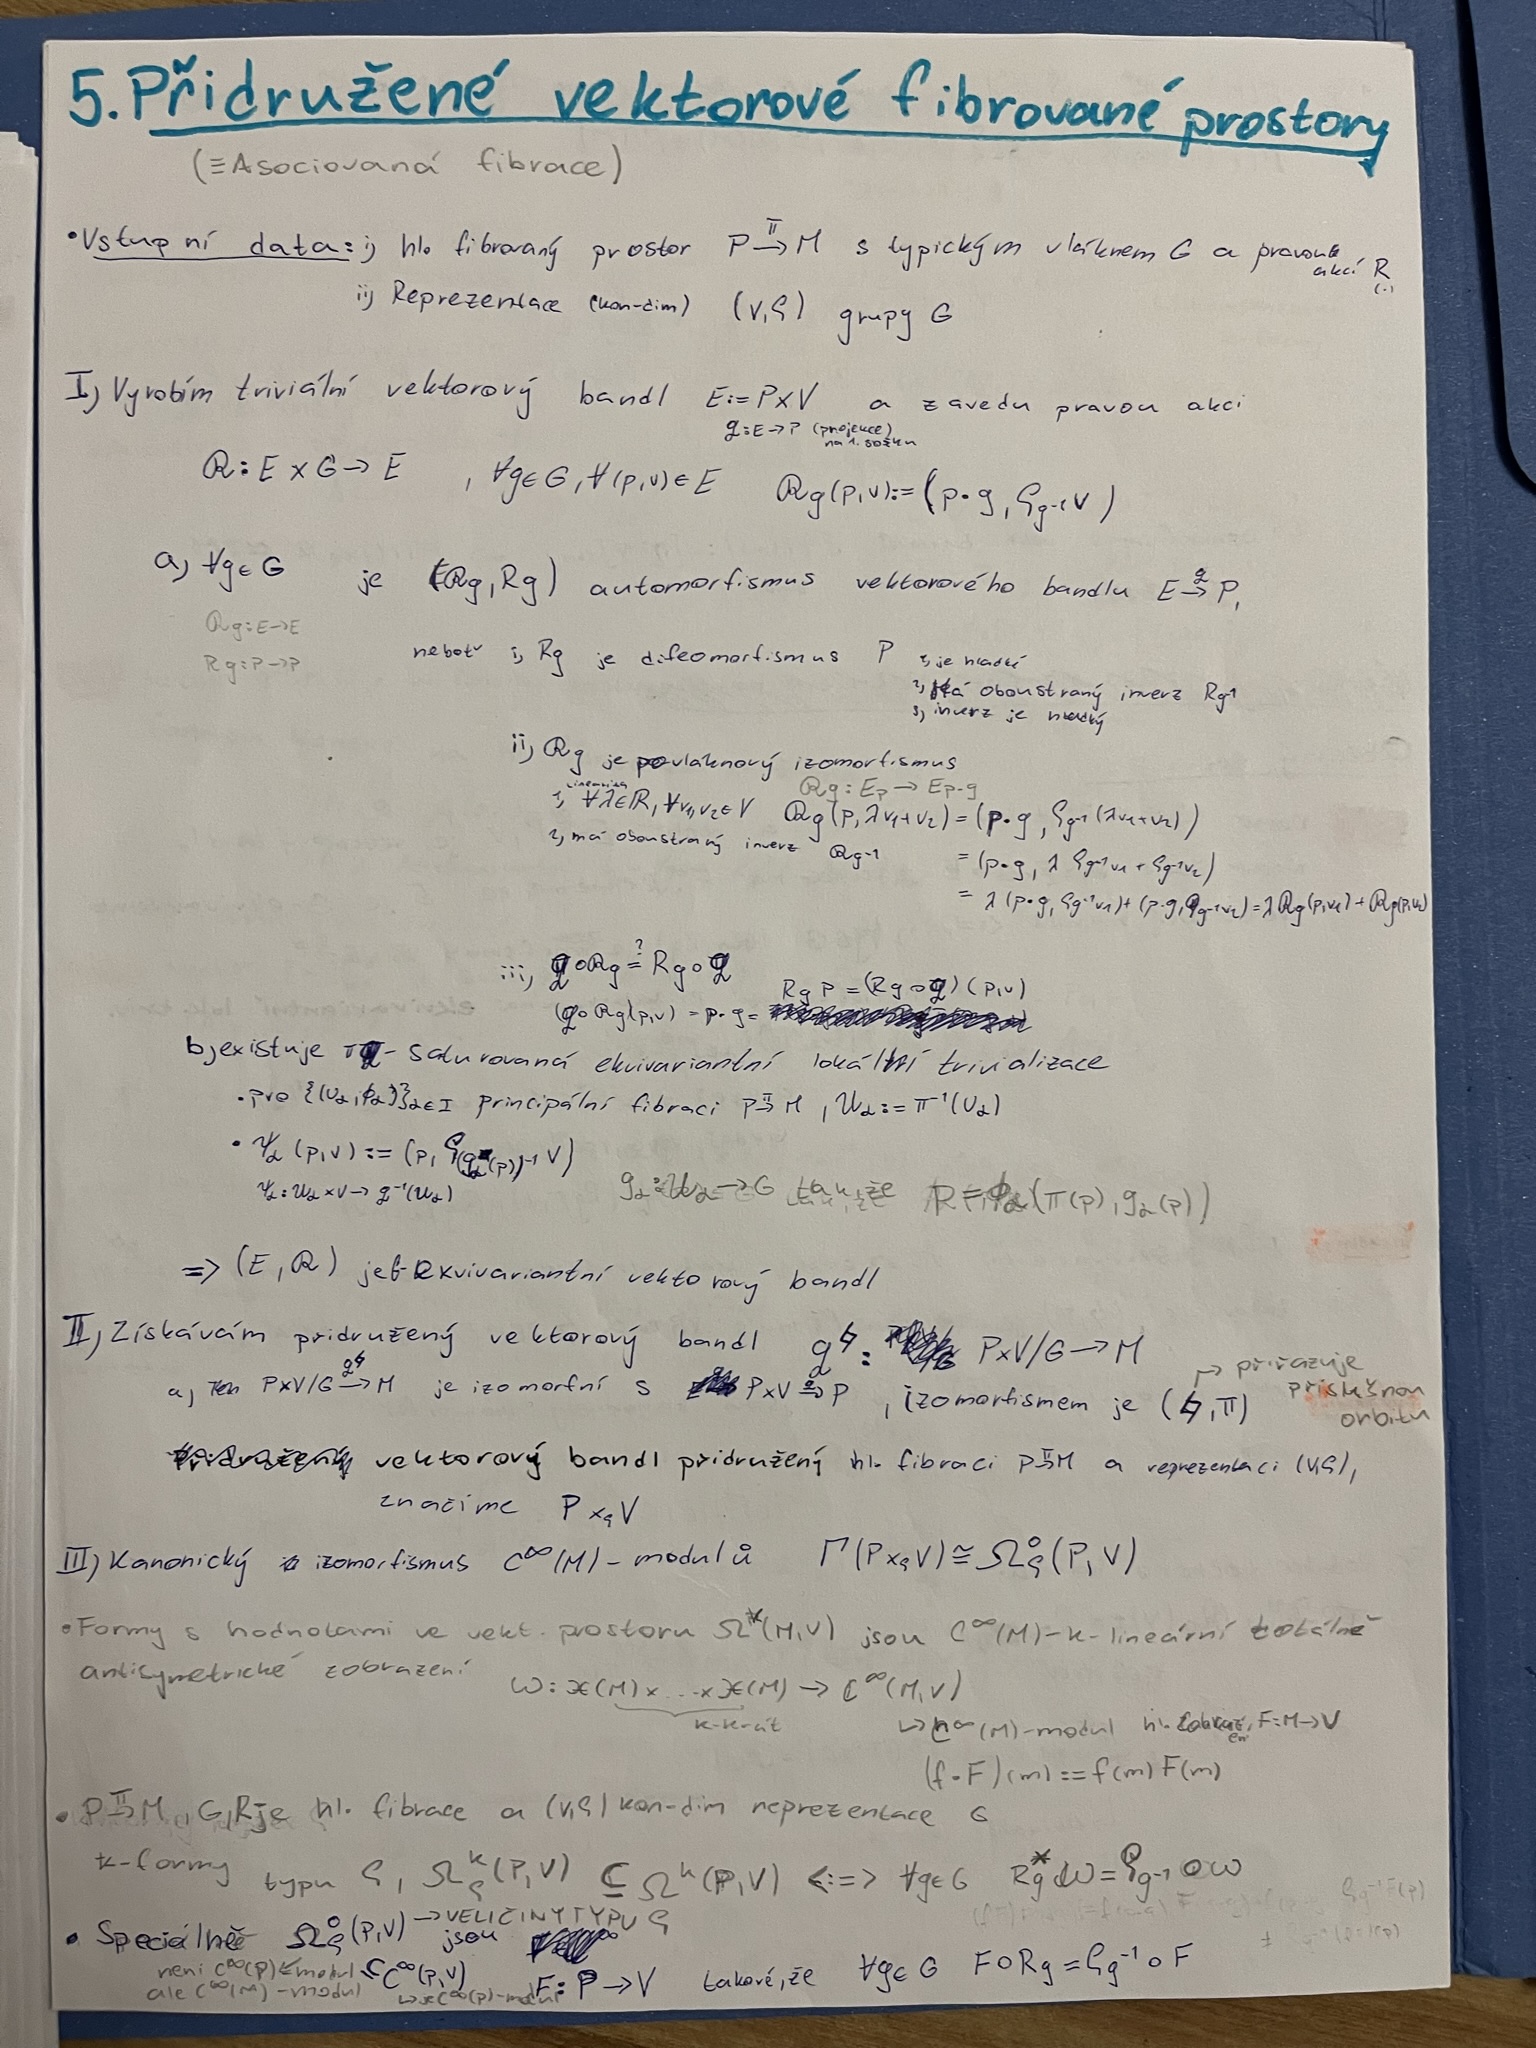 5. Přidružené vektorové fibrované prostory
(≡Asociovaná fibrace)
• Vstupní data: i) hl. fibrovaný prostor P →^π M s typickým vláknem G a pravou akcí R
ii) Reprezentace (kon-dim) (V,ρ) grupy G
I) Vyrobím triviální vektorový bandl E:=P×V a zavedu pravou akci
q:E→P (projekce) na 1. složku
ℛ: E×G→E , ∀g∈G, ∀(p,v)∈E ℛg(p,v):=(p·g, ρg⁻¹v)
a) ∀g∈G je (ℛg, Rg) automorfismus vektorového bandlu E →^q P,
ℛg:E→E
Rg:P→P
neboť i) Rg je difeomorfismus P 1) je hladké
2) Má oboustraný inverz Rg⁻¹
3) inverz je hladký
ii) ℛg je povláknový izomorfismus
ℛg: Ep → Ep·g
1) linearita ∀λ∈ℝ, ∀v₁,v₂∈V ℛg(p,λv₁+v₂)=(p·g, ρg⁻¹(λv₁+v₂))
2) má oboustraný inverz ℛg⁻¹ =(p·g, λ ρg⁻¹v₁+ρg⁻¹v₂)
= λ(p·g, ρg⁻¹v₁)+(p·g, ρg⁻¹v₂)=λℛg(p,v₁)+ℛg(p,v₂)
iii) q∘ℛg =^? Rg∘q
Rg p = (Rg∘q)(p,v)
(q∘ℛg)(p,v) = p·g =
b) existuje π-saturovaná ekvivariantní lokální trivializace
• pro {(Uα,ϕα)}α∈I principální fibraci P →^π M, 𝒰α := π⁻¹(Uα)
• ψα(p,v) := (p, ρ(gα(p))⁻¹ v)
ψα: 𝒰α×V→q⁻¹(𝒰α) gα: 𝒰α→G tak, že p=ϕα(π(p),gα(p))
=> (E,ℛ) je G-ekvivariantní vektorový bandl
II) Získávám přidružený vektorový bandl q^♮: P×V/G→M
a) Ten P×V/G →^q♮ M je izomorfní s P×V →^q P, izomorfismem je (♮,π)
↦ přiřazuje příslušnou orbitu
vektorový bandl přidružený hl. fibraci P →^π M a reprezentaci (V,ρ),
značíme P×ρV
III) Kanonický izomorfismus C^∞(M)-modulů Γ(P×ρV)≅Ω⁰ρ(P,V)
• Formy s hodnotami ve vekt. prostoru Ω^k(M,V) jsou C^∞(M)-k-lineární totálně
antisymetrické zobrazení ω: 𝔛(M)×...×𝔛(M) → C^∞(M,V)
k-krát ↳ C^∞(M)-modul hl. zobrazení F:M→V
(f·F)(m):=f(m)F(m)
• P →^π M, G, R je hl. fibrace a (V,ρ) kon-dim reprezentace G
k-formy typu ρ, Ω^kρ(P,V) ⊆ Ω^k(P,V) <:=> ∀g∈G Rg*ω=ρg⁻¹∘ω
• Speciálně Ω⁰ρ(P,V) → VELIČINY TYPU ρ jsou
není C^∞(P)-modul ⊆ C^∞(P,V) F: P→V takové, že ∀g∈G F∘Rg=ρg⁻¹∘F
ale C^∞(M)-modul ↳ je C^∞(P)-modul